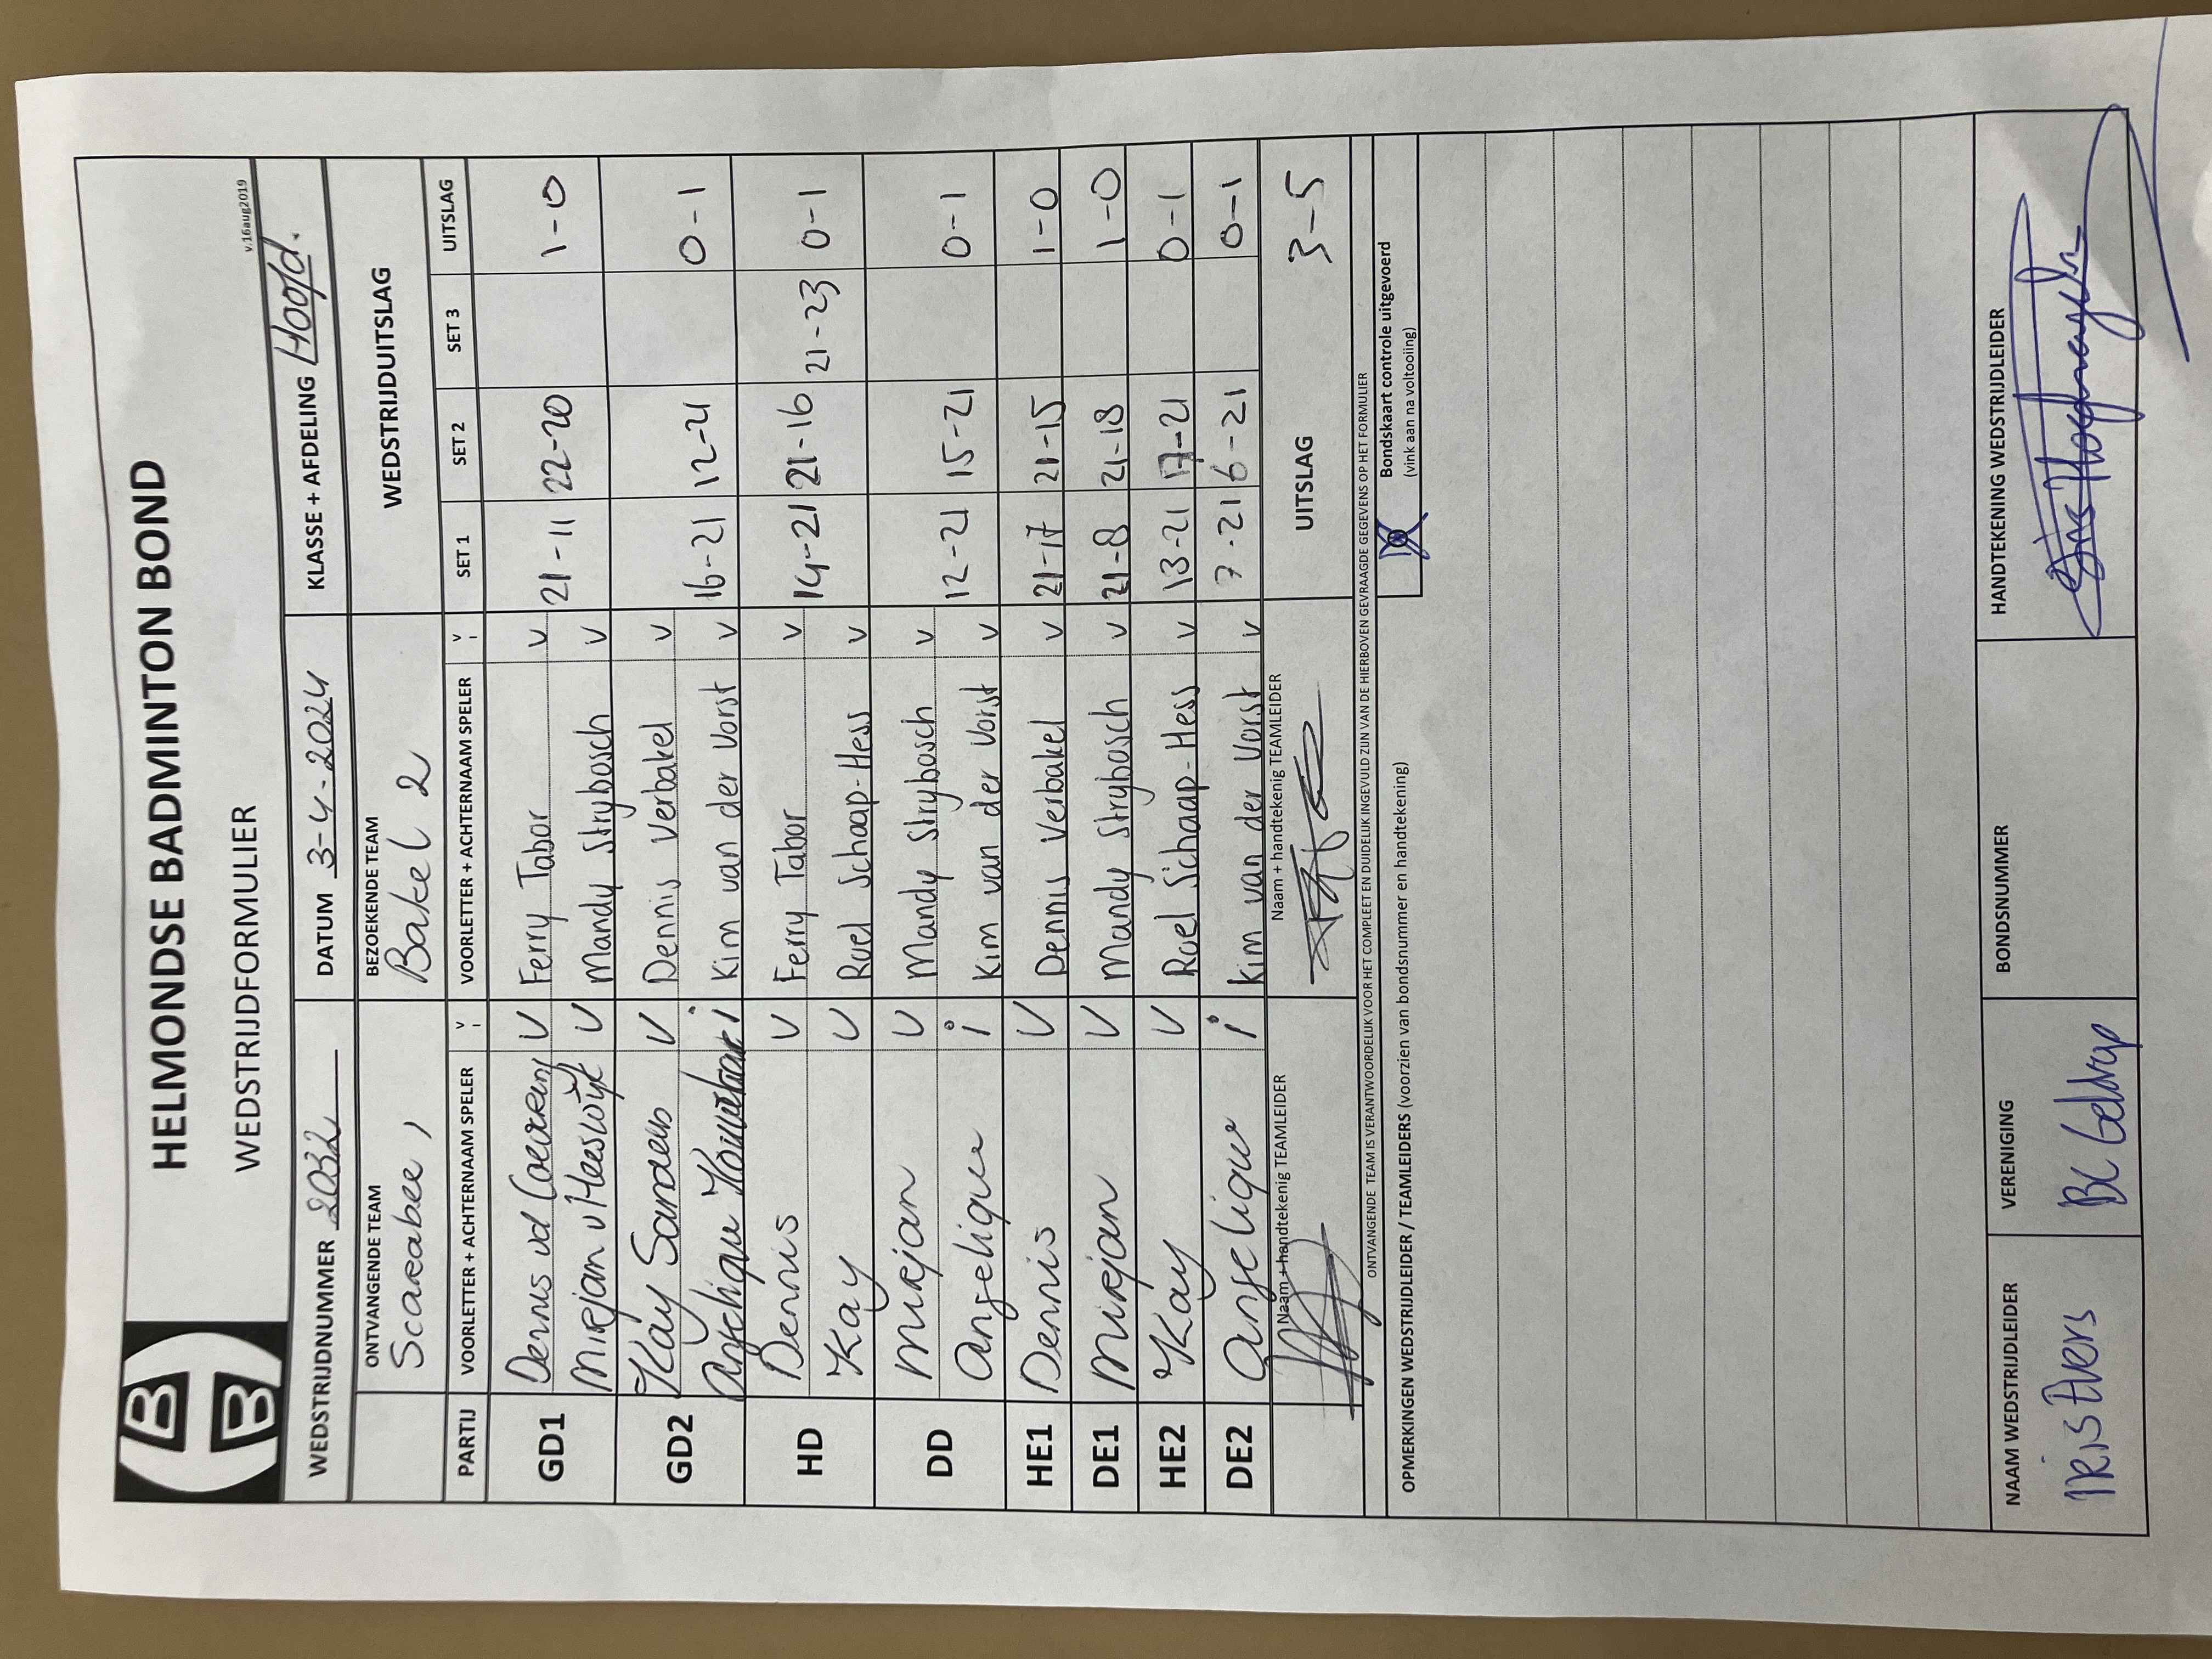 HELMONDSE BADMINTON BOND
WEDSTRIJDFORMULIER
v.16aug2019
WEDSTRIJDNUMMER 2032 DATUM 3-4-2024 KLASSE + AFDELING Hoofd.
ONTVANGENDE TEAM BEZOEKENDE TEAM WEDSTRIJDUITSLAG
Scarabee 1 Bakel 2
PARTIJ VOORLETTER + ACHTERNAAM SPELER V I VOORLETTER + ACHTERNAAM SPELER V I SET 1 SET 2 SET 3 UITSLAG
GD1 Dennis vd V Ferry Tabor V 21-11 22-20 1-0
Mirjan v Heeswijk V Mandy Strybosch V
GD2 Kay Sanders V Dennis Verbakel V 16-21 12-21 0-1
Angelique i Kim van der Vorst V
HD Dennis V Ferry Tabor V 14-21 21-16 21-23 0-1
Kay V Roel Schaap-Hess V
DD Mirjan V Mandy Strybosch V 12-21 15-21 0-1
Angelique i Kim van der Vorst V
HE1 Dennis V Dennis Verbakel V 21-17 21-15 1-0
DE1 Mirjan V Mandy Strybosch V 21-8 21-18 1-0
HE2 Kay V Roel Schaap-Hess V 13-21 17-21 0-1
DE2 Angelique i Kim van der Vorst V 7-21 6-21 0-1
Naam + handtekenig TEAMLEIDER Naam + handtekenig TEAMLEIDER UITSLAG 3-5
ONTVANGENDE TEAM IS VERANTWOORDELIJK VOOR HET COMPLEET EN DUIDELIJK INGEVULD ZIJN VAN DE HIERBOVEN GEVRAAGDE GEGEVENS OP HET FORMULIER
Bondskaart controle uitgevoerd
(vink aan na voltooiing)
OPMERKINGEN WEDSTRIJDLEIDER / TEAMLEIDERS (voorzien van bondsnummer en handtekening)
NAAM WEDSTRIJDLEIDER VERENIGING BONDSNUMMER HANDTEKENING WEDSTRIJDLEIDER
IRIS Evers BC Geldrop